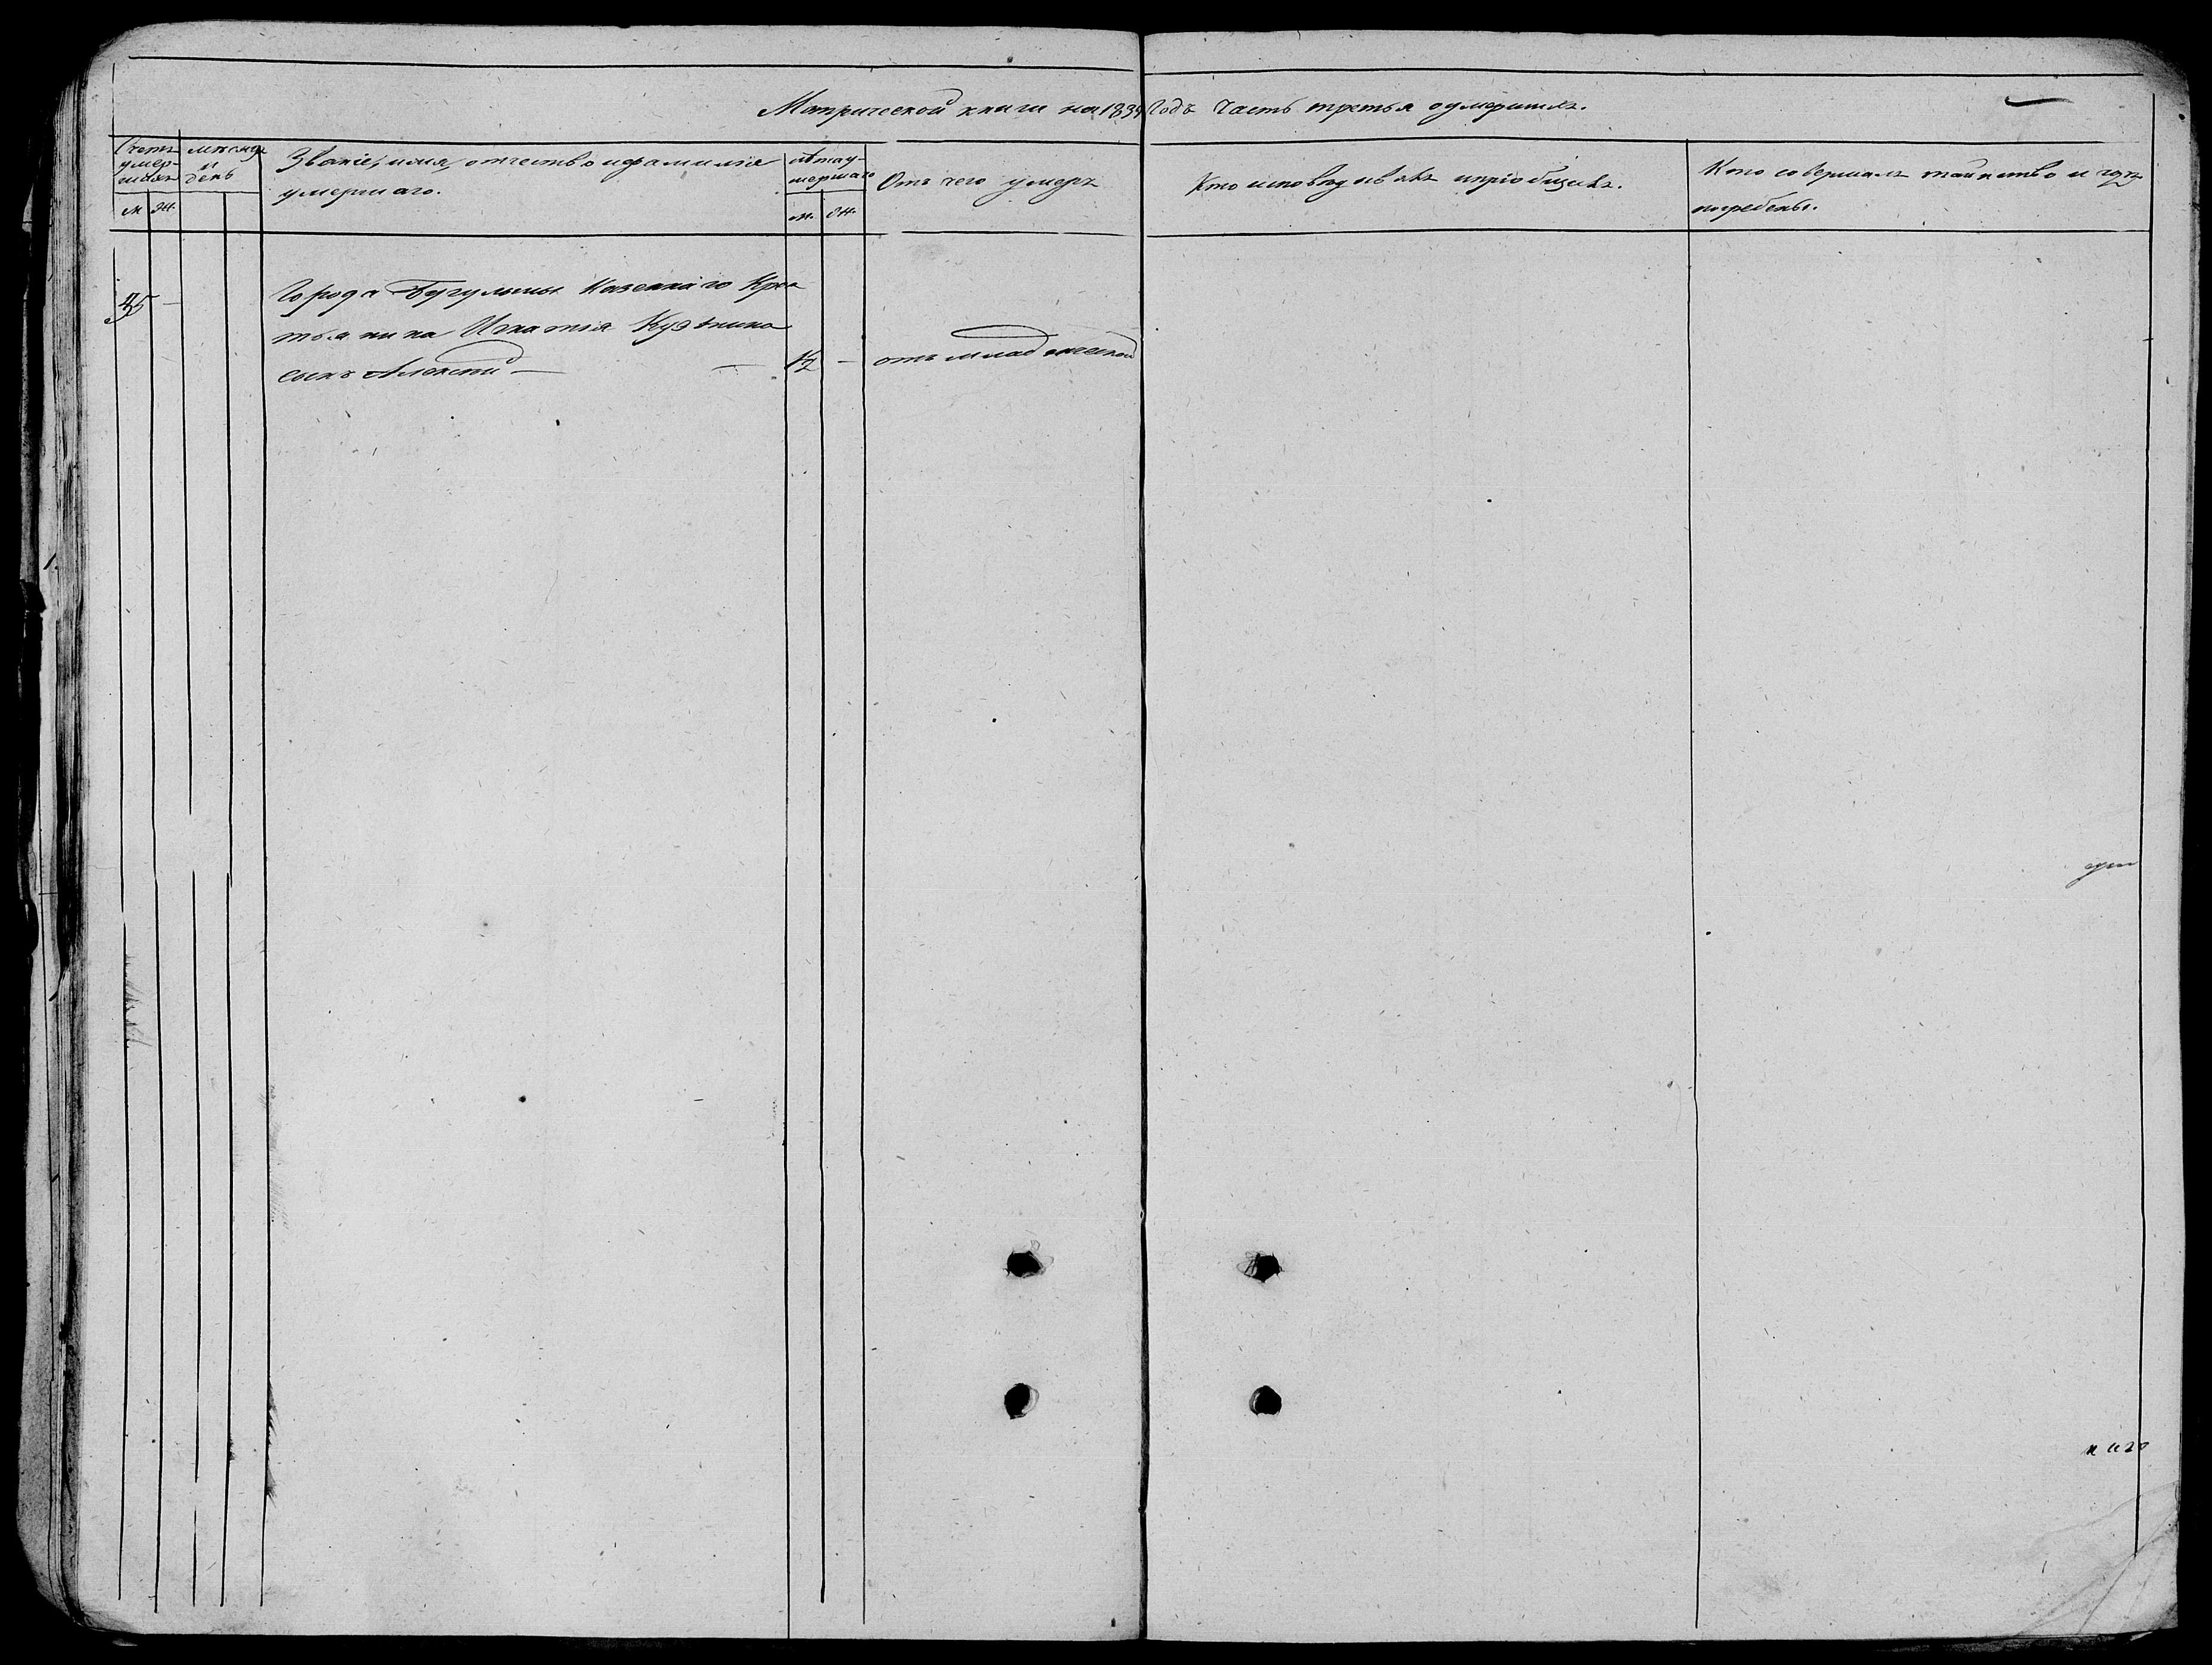 Метрической книги на 1834 Годъ часть третья о умершихъ.
Счетъ умер- шихъ
месяцъ и день
Званіе, имя, отчество и фамилія
умершаго.
лѣта у- мершаго
Отъ чего умеръ
Кто исповѣдывалъ и пріобщилъ.
Кто совершалъ таинство и гдѣ
погребены.
м ж
м. ж.
35 —
Города Бугульмы Казеннаго Крес
тьянина Игнатія
сынъ Алексѣй — — 1/2 — отъ младенческой